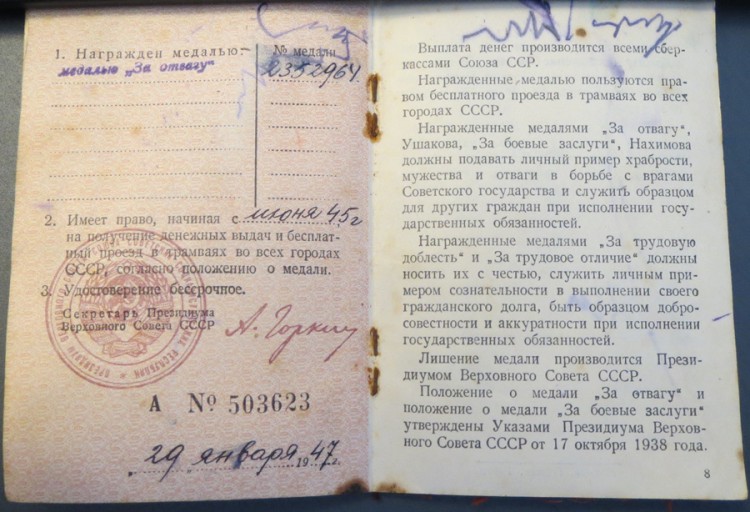 1. Награжден медалью:
№ медали
медалью „За отвагу"
2352964
2. Имеет право, начиная с июня 45 г
на получение денежных выдач и бесплат-
ный проезд в трамваях во всех городах
СССР, согласно положению о медали.
3. Удостоверение бессрочное.
Секретарь Президиума
Верховного Совета СССР
А. Горкин
А № 503623
„29 января 1947 г.
Выплата денег производится всеми сбер-
кассами Союза ССР.
Награжденные медалью пользуются пра-
вом бесплатного проезда в трамваях во всех
городах СССР.
Награжденные медалями „За отвагу",
Ушакова, „За боевые заслуги", Нахимова
должны подавать личный пример храбрости,
мужества и отваги в борьбе с врагами
Советского государства и служить образцом
для других граждан при исполнении госу-
дарственных обязанностей.
Награжденные медалями „За трудовую
доблесть" и „За трудовое отличие" должны
носить их с честью, служить личным при-
мером сознательности в выполнении своего
гражданского долга, быть образцом добро-
совестности и аккуратности при исполнении
государственных обязанностей.
Лишение медали производится Прези-
диумом Верховного Совета СССР.
Положение о медали „За отвагу" и
положение о медали „За боевые заслуги"
утверждены Указами Президиума Верхов-
ного Совета СССР от 17 октября 1938 года.
8